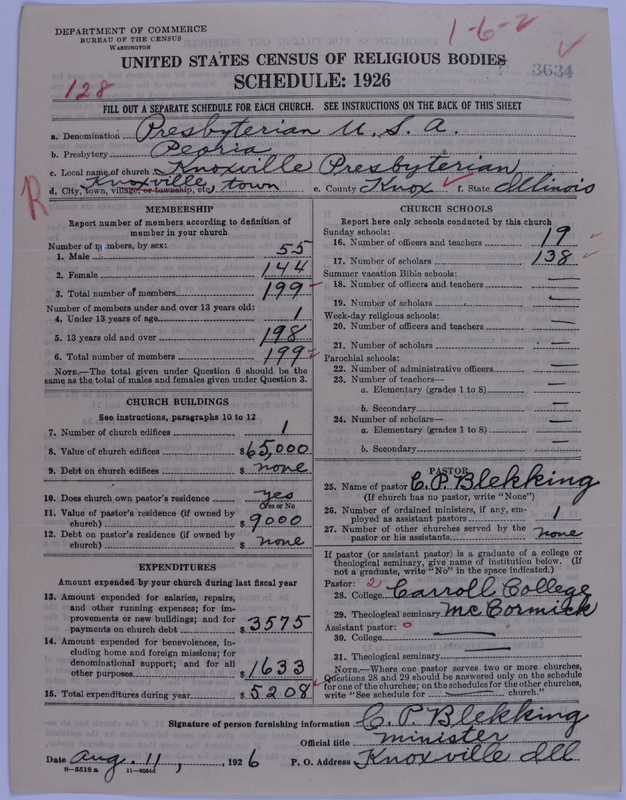 DEPARTMENT OF COMMERCE
BUREAU OF THE CENSUS
WASHINGTON
1-6-2
UNITED STATES CENSUS OF RELIGIOUS BODIES
3634
128
SCHEDULE: 1926
FILL OUT A SEPARATE SCHEDULE FOR EACH CHURCH. SEE INSTRUCTIONS ON THE BACK OF THIS SHEET
a. Denomination Presbyterian U. S. A.
b. Presbytery Peoria
c. Local name of church Knoxville Presbyterian
R d. City, town, village, or township, etc. Knoxville, town e. County Knox f. State Illinois
MEMBERSHIP
Report number of members according to definition of
member in your church
Number of members, by sex:
1. Male 55
2. Female 144
3. Total number of members 199
Number of members under and over 13 years old:
4. Under 13 years of age 1
5. 13 years old and over 198
6. Total number of members 199
NOTE.—The total given under Question 6 should be
same as the total of males and females given under Question 3.
CHURCH BUILDINGS
See instructions, paragraphs 10 to 12
7. Number of church edifices 1
8. Value of church edifices $65,000
9. Debt on church edifices $ none
10. Does church own pastor's residence yes
Yes or No
11. Value of pastor's residence (if owned by
church) $ 9000
12. Debt on pastor's residence (if owned by
church) $ none
EXPENDITURES
Amount expended by your church during last fiscal year
13. Amount expended for salaries, repairs,
and other running expenses; for im-
provements or new buildings; and for
payments on church debt $ 3575
14. Amount expended for benevolences, in-
cluding home and foreign missions; for
denominational support; and for all
other purposes $ 1633
15. Total expenditures during year $ 5208
CHURCH SCHOOLS
Report here only schools conducted by this church
Sunday schools:
16. Number of officers and teachers 19
17. Number of scholars 138
Summer vacation Bible schools:
18. Number of officers and teachers —
19. Number of scholars —
Week-day religious schools:
20. Number of officers and teachers —
21. Number of scholars —
Parochial schools:
22. Number of administrative officers —
23. Number of teachers—
a. Elementary (grades 1 to 8) —
b. Secondary —
24. Number of scholars—
a. Elementary (grades 1 to 8) —
b. Secondary —
PASTOR
25. Name of pastor C. P. Blekking
(If church has no pastor, write "None")
26. Number of ordained ministers, if any, em-
ployed as assistant pastors 1
27. Number of other churches served by the
pastor or his assistants none
If pastor (or assistant pastor) is a graduate of a college or
theological seminary, give name of institution below. (If
not a graduate, write "No" in the space indicated.)
Pastor: 2
28. College Carroll College
29. Theological seminary McCormick
Assistant pastor: 0
30. College —
31. Theological seminary —
NOTE.—Where one pastor serves two or more churches,
Questions 28 and 29 should be answered only on the schedule
for one of the churches; on the schedules for the other churches,
write "See schedule for ______ church."
Signature of person furnishing information C. P. Blekking
Official title Minister
Date Aug. 11, 1926 P. O. Address Knoxville Ill
8—5518 a